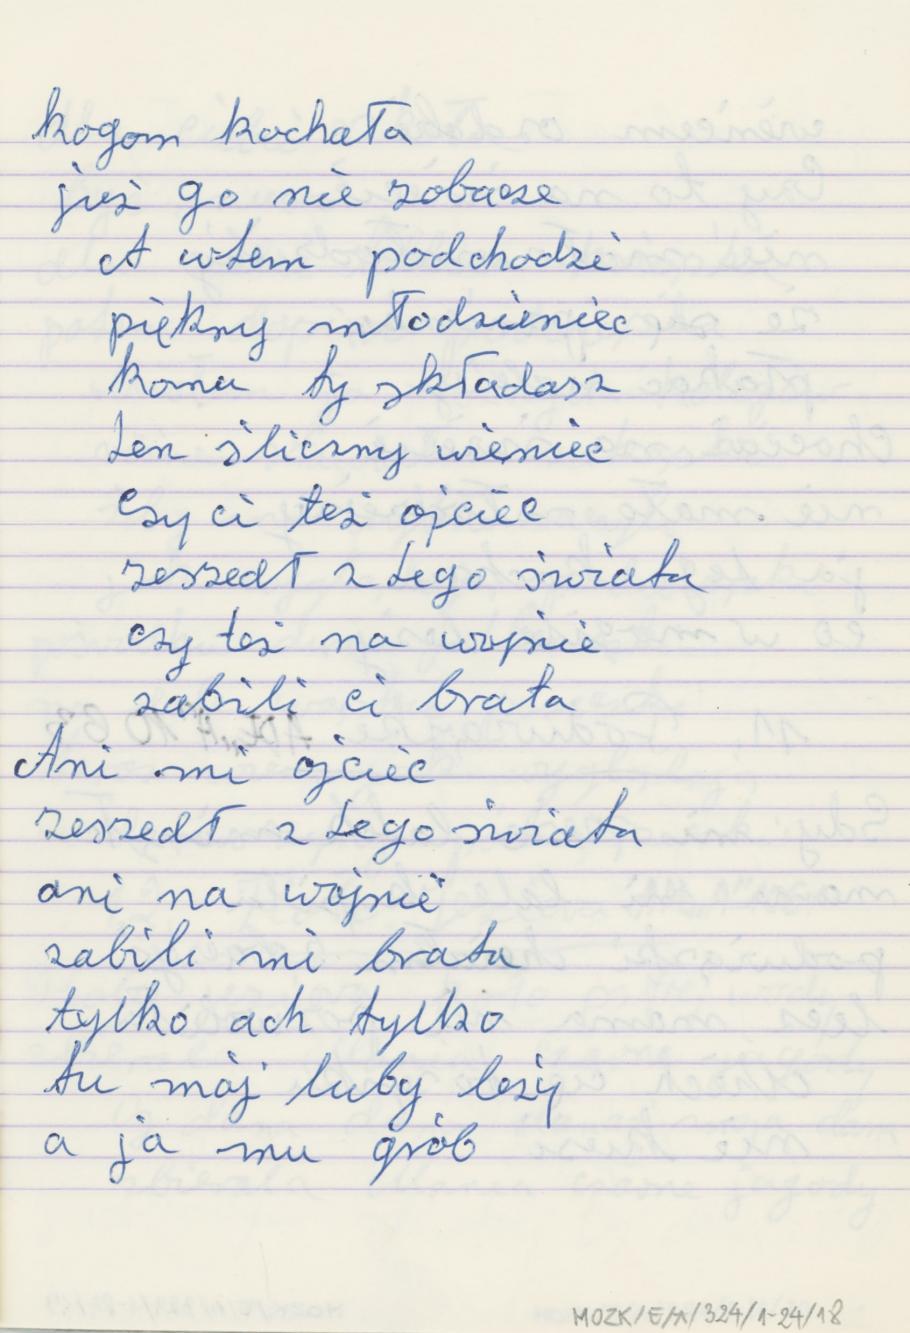 kogom kochała
już go nie zobacze
A wtem podchodzi
piękny młodzieniec
komu ty składasz
ten śliczny wieniec
czy ci też ojciec
zeszedł z tego świata
czy też na wojnie
zabili ci brata
Ani mi ojciec
zeszedł z tego świata
ani na wojnie
zabili mi brata
tylko ach tylko
tu mój luby leży
a ja mu grób
MOZK/E/A/324/1-24/18